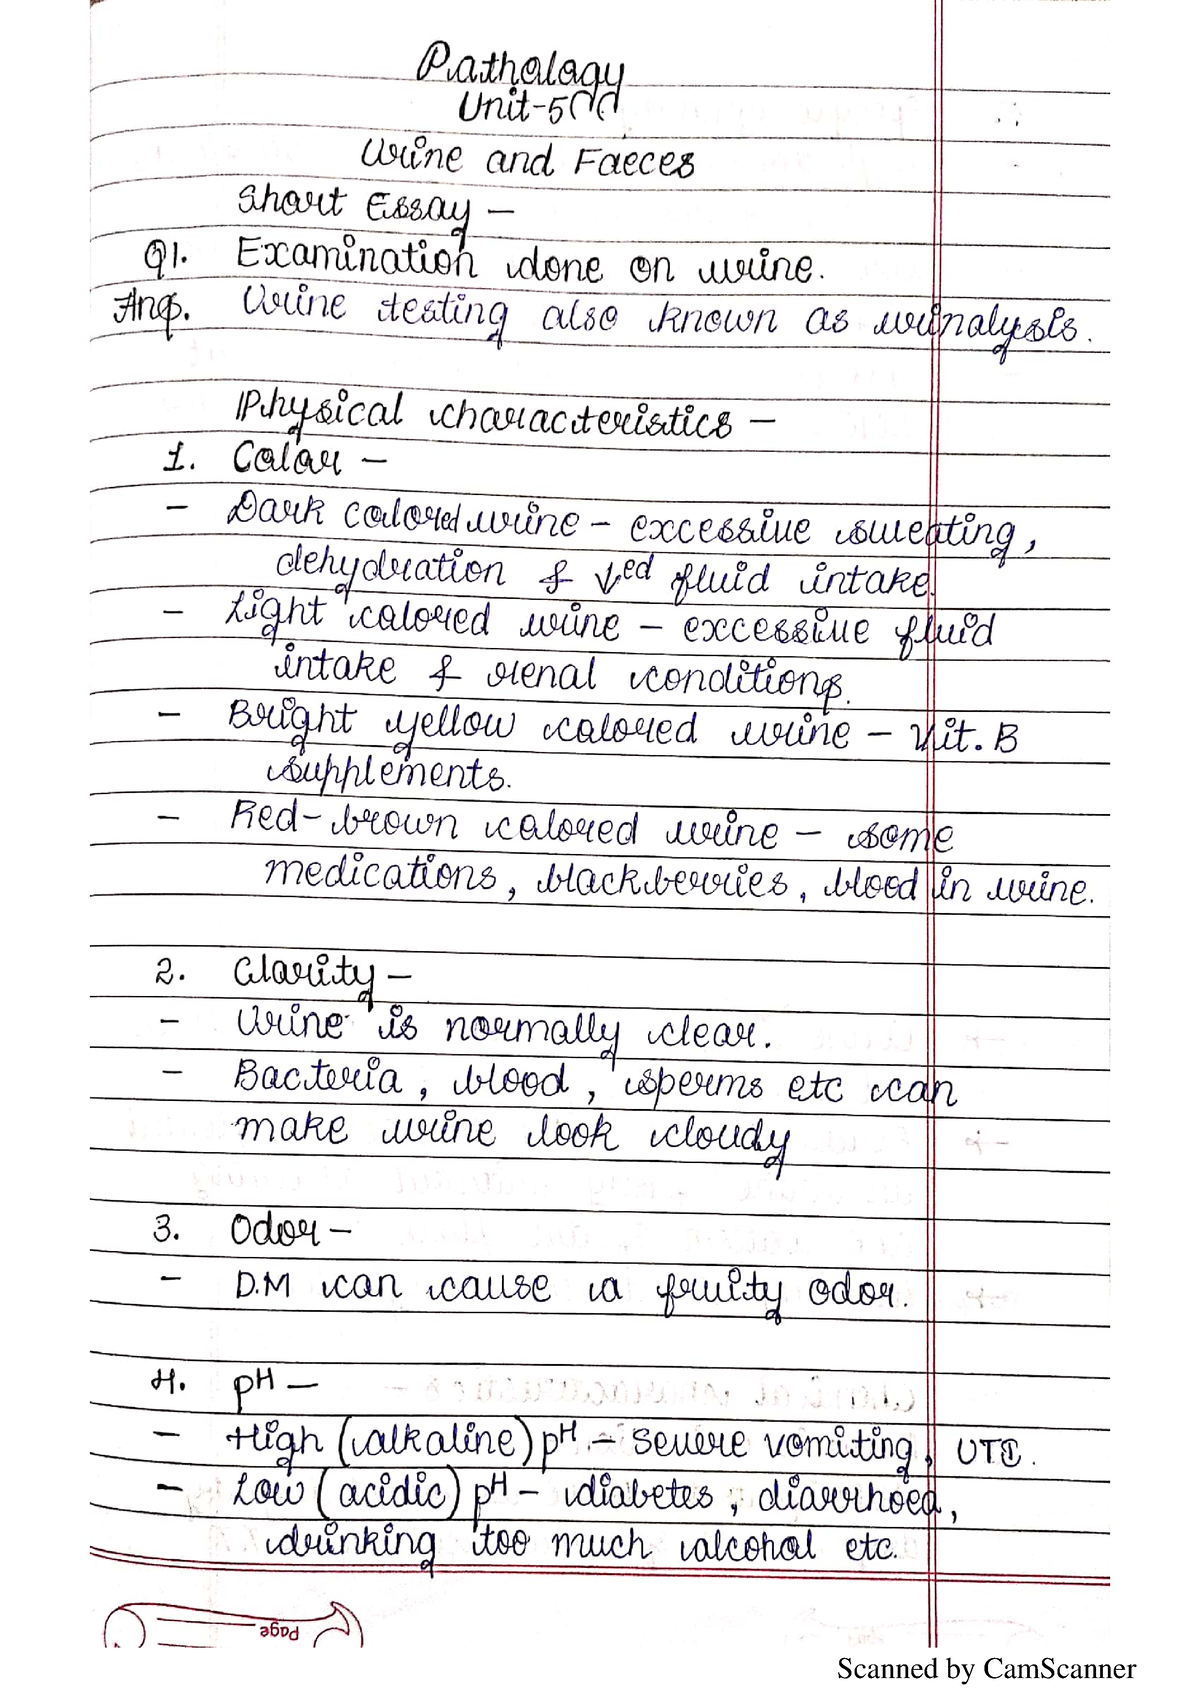 Pathology
Unit-5
Urine and Faeces
Short Essay –
Q1. Examination done on urine.
Ans. Urine testing also known as urinalysis.
Physical characteristics –
1. Color –
– Dark colored urine – excessive sweating,
dehydration & ↓ed fluid intake.
– Light colored urine – excessive fluid
intake & renal conditions.
– Bright yellow colored urine – Vit. B
supplements.
– Red-brown colored urine – some
medications, blackberries, blood in urine.
2. Clarity –
– Urine is normally clear.
– Bacteria, blood, sperms etc can
make urine look cloudy
3. Odor –
– D.M can cause a fruity odor.
4. pH –
– High (alkaline) pH – severe vomiting, UTI.
– Low (acidic) pH – diabetes, diarrhoea,
drinking too much alcohol etc.
Page
Scanned by CamScanner